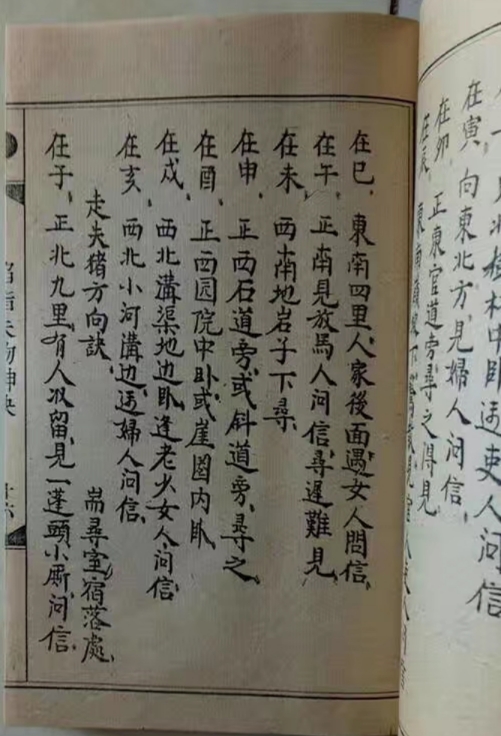 林中卧遇吏人问信
在寅，向東北方，見婦人问信，
在卯，正東官道旁，尋之得見
在辰，東南
在巳，東南四里，人家後面遇女人問信，
在午，正南見放馬人问信，尋遲難見，
在未，西南地岩子下尋，
在申，正西石道旁，或斜道旁，尋之，
在酉，正西园院中卧，或崖圈内卧，
在戌，西北溝渠地边卧，逢老少女人问信，
在亥，西北小河溝边，遇婦人问信，
走失猪方向訣，耑尋室宿落處，
在子，正北九里，有人收留，見一蓬頭小厮问信，
掐指失物神决
十六